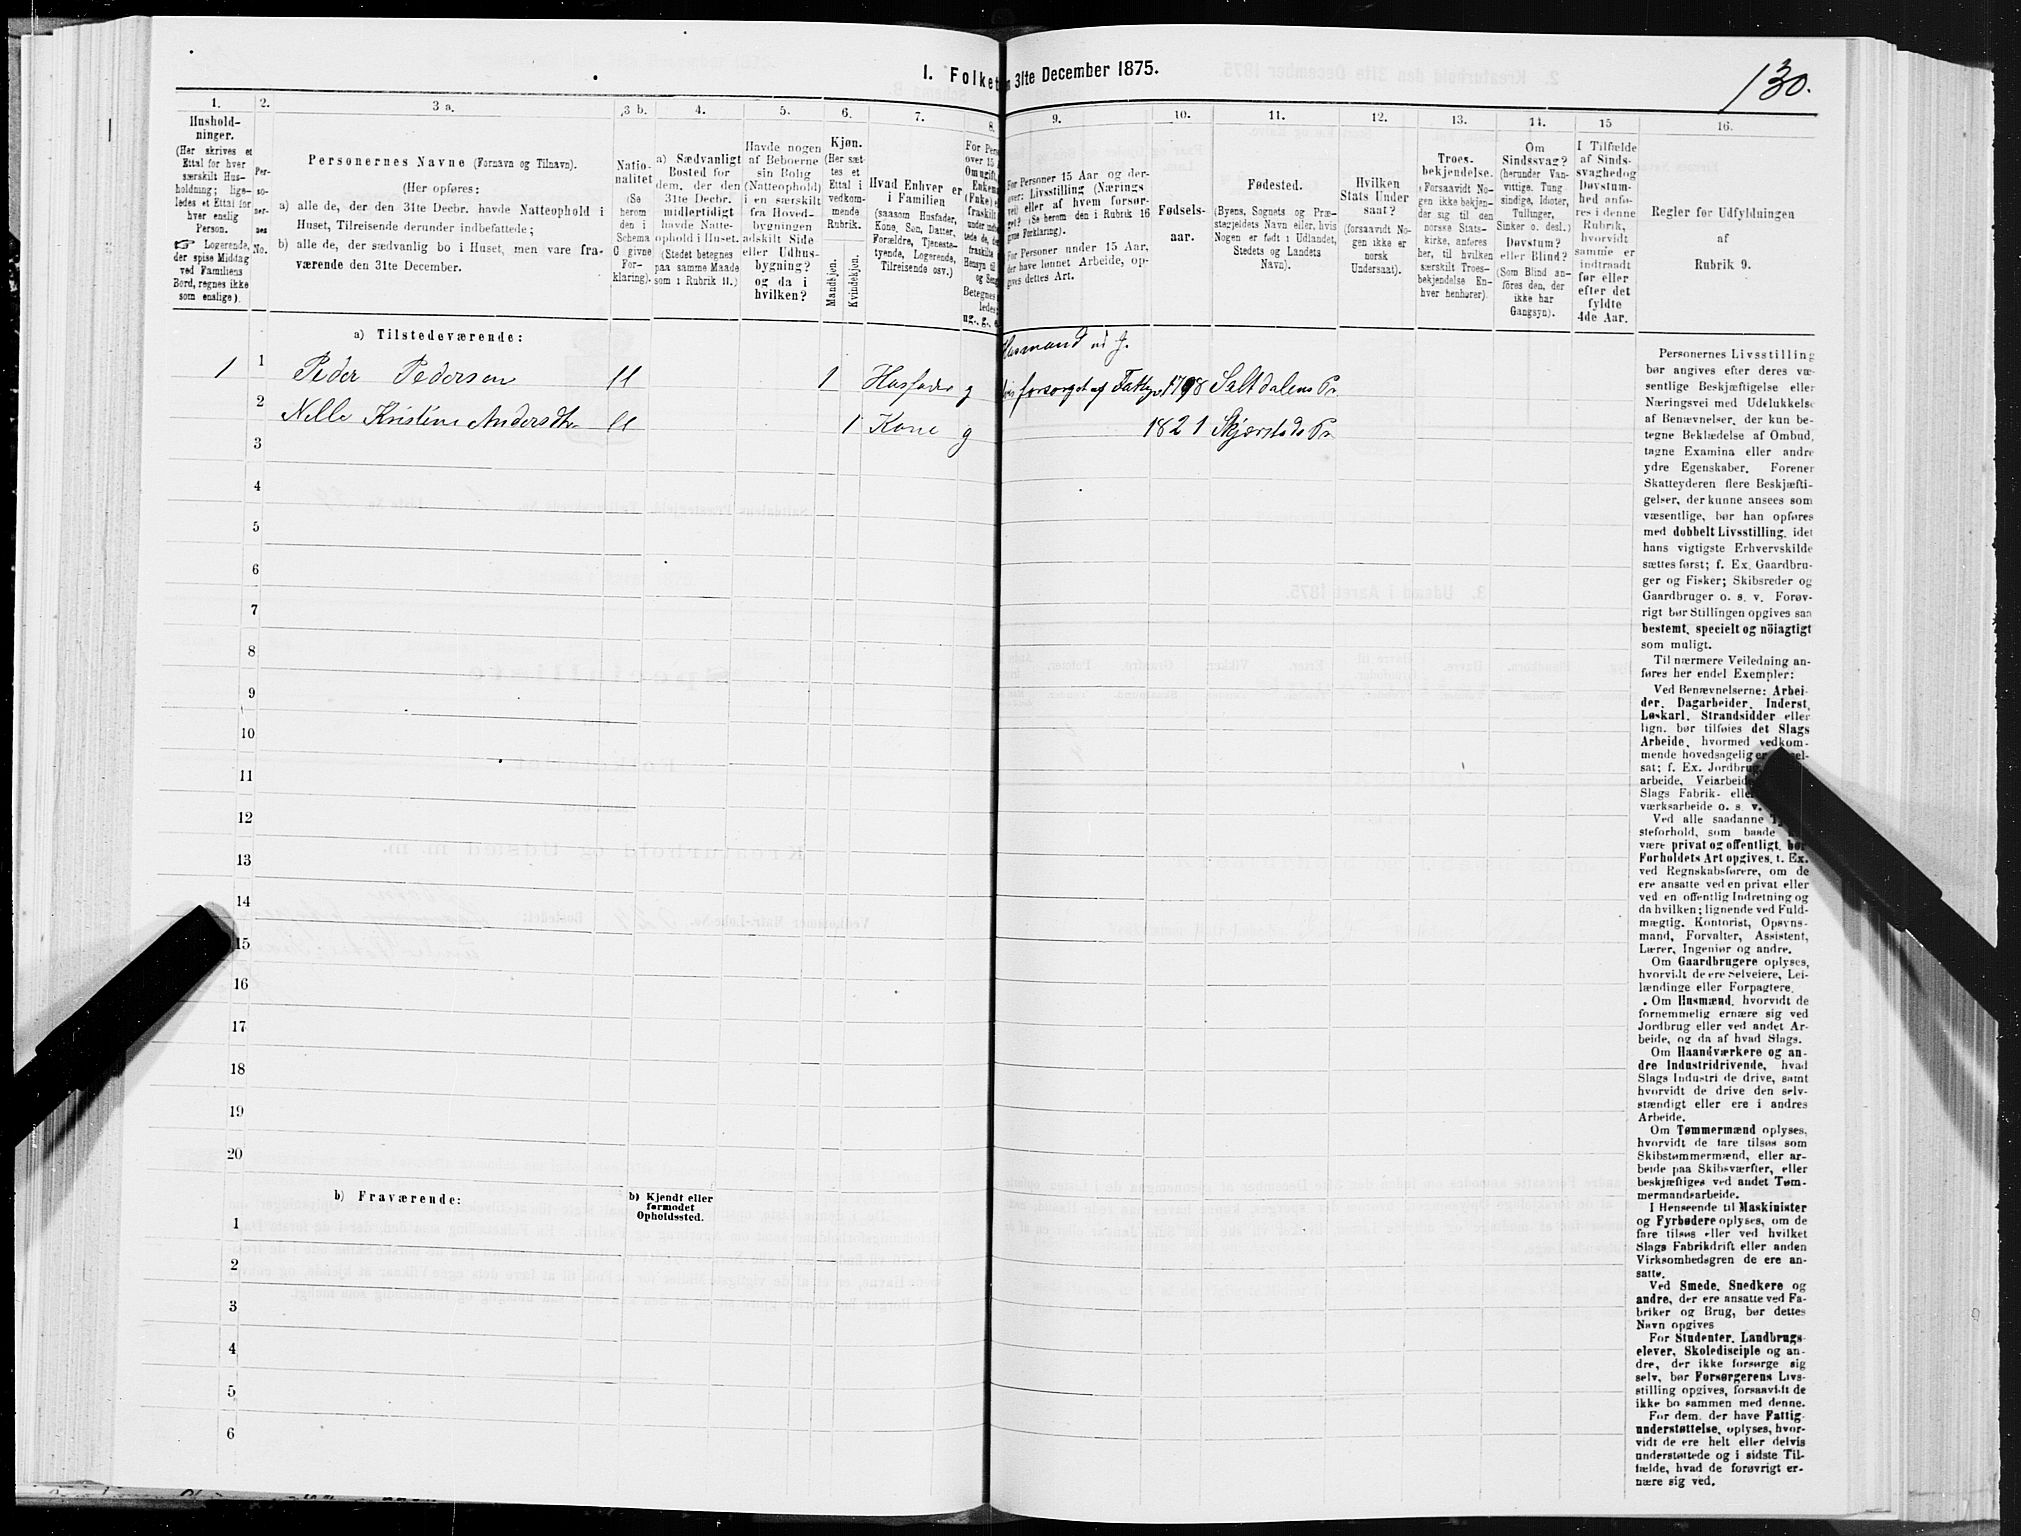 130.
1. Folket
n 31te December 1875.
1.
Hushold-
ninger.
(Her skrives et
Ettal for hver
særskilt Hus-
holdning; lige-
ledes et Ettal for
hver enslig
Person.
☞ Logerende,
der spise Middag
ved Familiens
Bord, regnes ikke
som enslige).
2.
Per-
so-
ner-
nes
No.
3 a.
Personernes Navne (Fornavn og Tilnavn).
(Her opføres:
a) alle de, der den 31te Decbr. havde Natteophold i
Huset, Tilreisende derunder indbefattede;
b) alle de, der sædvanlig bo i Huset, men vare fra-
værende den 31te December.
3 b.
Natio-
nalitet
(Se
herom
den i
Schema
6 givne
For-
klaring).
4.
a) Sædvanligt
Bosted for
dem, der den
31te Decbr.
midlertidigt
havde Natte-
ophold i Huset.
(Stedet betegnes
paa samme Maade
som i Rubrik 11.)
5.
Havde nogen
af Beboerne
sin Bolig
(Natteophold)
i en særskilt
fra Hoved-
bygningen
adskilt Side
eller Udhus-
bygning?
og da i
hvilken?
6.
Kjøn.
(Her sæt-
tes et
Ettal i
vedkom-
mende
Rubrik.
Mandkjøn.
Kvindekjøn.
7.
Hvad Enhver er
i Familien
(saasom Husfader,
Kone, Søn, Datter,
Forældre, Tjeneste-
tyende, Logerende,
Tilreisende osv.)
8.
For Pers
over 15 A
Om ugift,
Enkem
(Enke) e
fraskilt
Betegnes
ledes:
ug., g., e
9.
For Personer 15 Aar og der-
over: Livsstilling (Nærings
vei) eller af hvem forsør-
get? (Se herom den i Rubrik 16
givne Forklaring).
For Personer under 15 Aar,
der have lønnet Arbeide, op-
gives dettes Art.
10.
Fødsels-
aar.
11.
Fødested.
(Byens, Sognets og Præ-
stegjeldets Navn eller, hvis
Nogen er født i Udlandet,
Stedets og Landets
Navn).
12.
Hvilken
Stats Under
saat?
(forsaavidt No-
gen ikke er
norsk
Undersaat).
13.
Troes-
bekjendelse.
(Forsaavidt No-
gen ikke bekjen-
der sig til den
norske Stats-
kirke, anføres
her, til hvilken
særskilt Troes-
bekjendelse En-
hver henhører).
14.
Om
Sindssvag?
(herunder Van-
vittige, Tung
sindige, Idioter,
Tullinger,
Sinker o. desl.)
Døvstum?
eller Blind?
(Som Blind an-
føres den, der
ikke har
Gangsyn).
15
I Tilfælde
af Sinds-
svaghed og
Døvstum-
hed anfø-
res i denne
Rubrik,
hvorvidt
samme er
indtraadt
før eller
efter det
fyldte
4de Aar.
16.
Regler for Udfyldningen
af
Rubrik 9.
a) Tilstedeværende:
Husmand u J.
1 1 Peder Pedersen 1 Husfader g forsørget af 1798 Saltdalens Pr
2 Nelle Kristine Andersdtr 1 Kone g 1821 Skjerstads Pr
3
4
5
6
7
8
9
10
11
12
13
14
15
16
17
18
19
20
b) Fraværende:
b) Kjendt eller
formodet
Opholdssted.
1
2
3
4
5
6
Personernes Livsstilling
bør angives efter deres væ-
sentlige Beskjæftigelse eller
Næringsvei med Udelukkelse
af Benævnelser, der kun be-
tegne Beklædelse af Ombud,
tagne Examina eller andre
ydre Egenskaber. Forener
Skatteyderen flere Beskjæfti-
gelser, der kunne ansees som
væsentlige, bør han opføres
med dobbelt Livsstilling, idet
hans vigtigste Erhvervskilde
sættes først; f. Ex. Gaardbru-
ger og Fisker; Skibsreder og
Gaardbruger o. s. v. Forøv-
rigt bør Stillingen opgives saa
bestemt, specielt og nöiagtigt
som muligt.
Til nærmere Veiledning an-
føres her endel Exempler:
Ved Benævnelserne: Arbei-
der, Dagarbeider, Inderst,
Løskarl, Strandsidder eller
lign. bør tilføies det Slags
Arbeide, hvormed vedkom-
mende hovedsagelig er
sat; f. Ex. Jordbrug
arbeide, Veiarbeid
Slags Fabrik- elle
værksarbeide o. s. v.
Ved alle saadanne
steforhold, som baade
være privat og offentligt, bør
Forholdets Art opgives, t. Ex.
ved Regnskabsførere, om de
ere ansatte ved en privat eller
ved en offentlig Indretning og
da hvilken; lignende ved Fuld-
mægtig, Kontorist, Opsyns-
mand, Forvalter, Assistent,
Lærer, Ingeniør og andre.
Om Gaardbrugere oplyses,
hvorvidt de ere Selveiere, Lei-
lændinge eller Forpagtere.
Om Husmænd, hvorvidt de
fornemmelig ernære sig ved
Jordbrug eller ved andet Ar-
beide, og da af hvad Slags.
Om Haandværkere og an-
dre Industridrivende, hvad
Slags Industri de drive, samt
hvorvidt de drive den selv-
stændigt eller ere i andres
Arbeide.
Om Tømmermænd oplyses,
hvorvidt de fare tilsøs som
Skibstømmermænd, eller ar-
beide paa Skibsværfter, eller
beskjæftiges ved andet Tøm-
mermandsarbeide.
I Henseende til Maskinister
og Fyrbødere oplyses, om de
fare tilsøs eller ved hvilket
Slags Fabrikdrift eller anden
Virksomhedsgren de ere an-
satte.
Ved Smede, Snedkere og
andre, der ere ansatte ved Fa-
briker og Brug, bør dettes
Navn opgives
For Studenter, Landbrugs-
elever, Skoledisciple og an-
dre, der ikke forsørge sig
selv, bør Forsørgerens Livs-
stilling opgives, forsaavidt de
ikke bo sammen med denne.
For dem, der have Fattig-
understøttelse, oplyses, hvor-
vidt de ere helt eller delvis
understøttede og i sidste Til-
fælde, hvad de forøvrigt er-
nære sig ved.